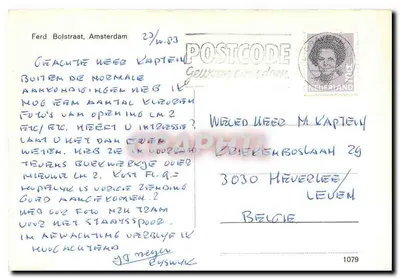 Ferd Bolstraat, Amsterdam
23/10.83
POSTCODE
Gewoon even doen
NEDERLAND
GEACHTE HEER KAPTEIN
BUITEN DE NORMALE
AANKONDIGINGEN HEB IK
NOG EEN AANTAL KLEUREN
FOTO'S VAN OPENING LN 2
ETC/ETC. HEEFT U INTERESSE?
LAAT U HET DAN EVEN
WETEN. HEB ZE IN
TEVENS BOEKWERKJE OVER
NIEUWE LN 2. KOST FL. 9.=
HOPELIJK IS VORIGE ZENDING
GOED AANGEKOMEN?
FOTO NZH TRAM
VOOR HET STAATSSPOOR.
IN AFWACHTING VERBLIJF IK
HOOGACHTEND
RYSWYK
WELED HEER M. KAPTEIN
29
3030 HEVERLEE/
LEUVEN
BELGIE
1079